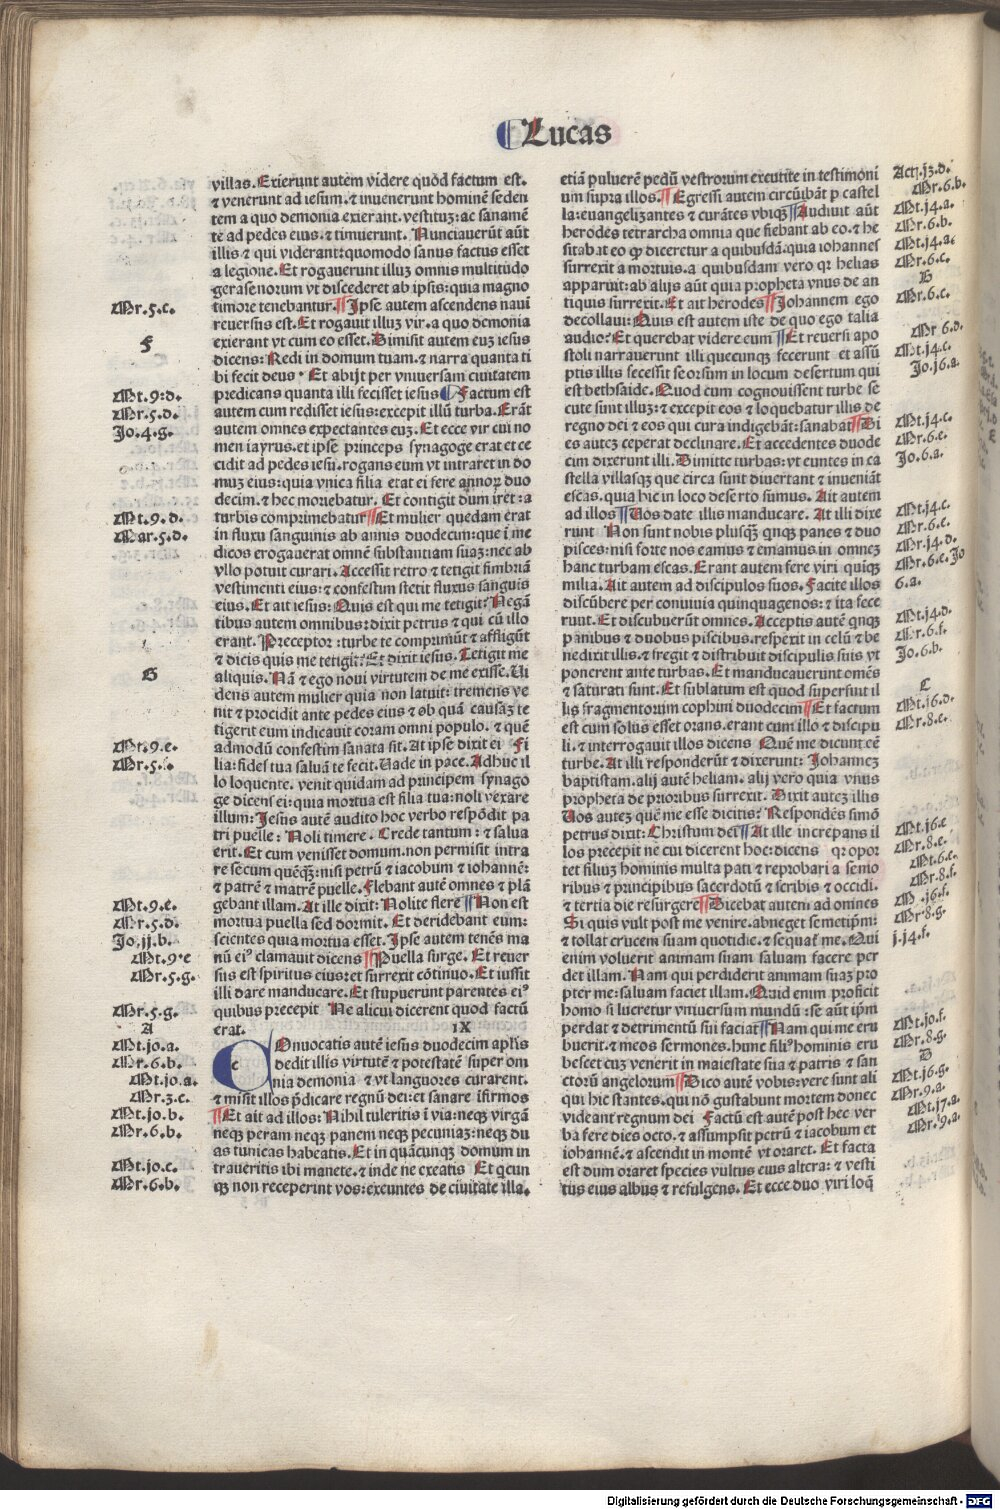 Lucas
villas. Exierunt autem videre quod factum est.
⁊ venerunt ad iesum.⁊ inuenerunt hominē seden
tem a quo demonia exierant. vestitū: ac sana mē
te ad pedes eius.⁊ timuerunt. Nunciauerūt aūt
illis ⁊ qui viderant: quomodo sanus factus esset
a legione. Et rogauerunt illuʒ omnis multitudo
gerasenorum vt discederet ab ipsis: quia magno
timore tenebantur. Ipse autem ascendens nauī
reuersus est. Et rogauit illuʒ vir. a quo demonia
exierant vt cum eo esset. Dimisit autem euʒ iesus
dicens: Redi in domum tuam. ⁊ narra quanta ti
bi fecit deus. Et abijt per vniuersam ciuitatem
predicans quanta illi fecisset iesus Factum est
autem cum redisset iesus: excepit illū turba. Erāt
autem omnes expectantes euʒ. Et ecce vir cui no
men iayrus. et ipse princeps synagoge erat et ce
cidit ad pedes iesu. rogans eum vt intraret in do
muʒ eius: quia vnica filia erat ei fere annoꝝ duo
decim. ⁊ hec moriebatur. Et contigit dum iret: a
turbis comprimebatur Et mulier quedam erat
in fluxu sanguinis ab annis duodecim: que ī me
dicos erogauerat omnē substantiam suaʒ: nec ab
vllo potuit curari. Accessit retro ⁊ tetigit fimbriā
vestimenti eius: ⁊ confestim stetit fluxus sanguis
eius. Et ait iesus: Quis est qui me tetigit: Negā
tibus autem omnibus: dixit petrus ⁊ qui cū illo
erant. Preceptor: turbe te comprimūt ⁊ affligūt
⁊ dicis quis me tetigit: Et dixit iesus. Tetigit me
aliquis. Nā ⁊ ego noui virtutem de me exisse. Ui
dens autem mulier quia non latuit: tremens ve
nit ⁊ procidit ante pedes eius ⁊ ob quā causaʒ te
tigerit eum indicauit coram omni populo. ⁊ quē
admodū confestim sanata sit. At ipse dixit ei Fi
lia: fides tua saluā te fecit. Uade in pace. Adhuc il
lo loquente. venit quidam ad principem synago
ge dicens ei: quia mortua est filia tua: noli vexare
illum: Iesus autē audito hoc verbo respōdit pa
tri puelle: Noli timere. Crede tantum: ⁊ salua
erit. Et cum venisset domum. non permisit intra
re secum quēqʒ: nisi petrū ⁊ iacobum ⁊ iohannē:
⁊ patrē ⁊ matrē puelle. Flebant autē omnes ⁊ plā
gebant illam. At ille dixit: Nolite flere Non est
mortua puella sed dormit. Et deridebant eum:
scientes quia mortua esset. Ipse autem tenēs ma
nū eiꝰ clamauit dicens Puella surge. Et reuer
sus est spiritus eius: et surrexit cōtinuo. Et iussit
illi dare manducare. Et stupuerunt parentes eiꝰ
quibus precepit Ne alicui dicerent quod factū
erat. IX
COnuocatis autē iesus duodecim aplīs
dedit illis virtutē ⁊ potestatē super om
nia demonia ⁊ vt languores curarent.
⁊ misit illos p̄dicare regnū dei: et sanare īfirmos
Et ait ad illos: Nihil tuleritis ī via: neqʒ virgā
neqʒ peram neqʒ panem neqʒ pecuniaʒ: neqʒ du
as tunicas habeatis. Et in quācunqʒ domum in
traueritis ibi manete. ⁊ inde ne exeatis Et qcun
qʒ non receperint vos: exeuntes de ciuitate illa.
etiā puluerē pedū vestrorum excutite in testimoni
um supra illos. Egressi autem circūibāt ꝑ castel
la: euangelizantes ⁊ curātes vbiqʒ Audiuit aūt
herodes tetrarcha omnia que fiebant ab eo. ⁊ he
sitabat eo ꝙ diceretur a quibusdā. quia iohannes
surrexit a mortuis. a quibusdam vero qꝛ helias
apparuit: ab alijs aūt quia propheta vnus de an
tiquis surrexit. Et ait herodes Iohannem ego
decollaui: Quis est autem iste de quo ego talia
audio: Et querebat videre eum Et reuersi apo
stoli narrauerunt illi quecunqʒ fecerunt et assū
ptis illis secessit seorsum in locum desertum qui
est bethsaide. Quod cum cognouissent turbe se
cute sunt illuʒ: ⁊ excepit eos ⁊ loquebatur illis de
regno dei ⁊ eos qui cura indigebāt: sanabat Di
es auteʒ ceperat declinare. Et accedentes duode
cim dixerunt illi. Dimitte turbas: vt euntes in ca
stella villasqʒ que circa sunt diuertant ⁊ inueniāt
escas. quia hic in loco deserto sumus. Ait autem
ad illos Uos date illis manducare. At illi dixe
runt Non sunt nobis plusqʒ qnqʒ panes ⁊ duo
pisces: nisi forte nos eamus ⁊ emamus in omneʒ
hanc turbam escas. Erant autem fere viri quiqʒ
milia. Ait autem ad discipulos suos. Facite illos
discūbere per conuiuia quinquagenos: ⁊ ita fece
runt. Et discubuerūt omnes. Acceptis autē qnqʒ
panibus ⁊ duobus piscibus. respexit in celū ⁊ be
nedixit illis. ⁊ fregit ⁊ distribuit discipulis suis vt
ponerent ante turbas. Et manducauerunt omēs
⁊ saturati sunt. Et sublatum est quod superfuit il
lis fragmentorum cophini duodecim Et factum
est cum solus esset orans. erant cum illo ⁊ discipu
li. ⁊ interrogauit illos dicens Quē me dicunt eē
turbe. At illi responderūt ⁊ dixerunt: Iohanneʒ
baptistam. alij autē heliam. alij vero quia vnus
propheta de prioribus surrexit. Dixit auteʒ illis
Uos auteʒ quē me esse dicitis: Respondēs simō
petrus dixit: Christum dei At ille increpans il
los precepit ne cui dicerent hoc: dicens qꝛ opor
tet filiuʒ hominis multa pati ⁊ reprobari a senio
ribus ⁊ principibus sacerdotū ⁊ scribis ⁊ occidi.
⁊ tertia die resurgere Dicebat autem ad omnes
Si quis vult post me venire. abneget semetipm̄:
⁊ tollat crucem suam quotidie. ⁊ sequat me. Qui
enim voluerit animam suam saluam facere per
det illam. Nam qui perdiderit animam suaʒ pro
pter me: saluam faciet illam. Quid enim proficit
homo si lucretur vniuersum mundū: se aūt ipm̄
perdat ⁊ detrimentū sui faciat Nam qui me eru
buerit. ⁊ meos sermones. hunc filiꝰ hominis eru
bescet cuʒ venerit in maiestate sua ⁊ patris ⁊ san
ctorū angelorum Dico autē vobis: vere sunt ali
qui hic stantes. qui nō gustabunt mortem donec
videant regnum dei Factū est autē post hec ver
ba fere dies octo. ⁊ assumpsit petrū ⁊ iacobum et
iohannē. ⁊ ascendit in montē vt oraret. Et facta
est dum oraret species vultus eius altera: ⁊ vesti
tus eius albus ⁊ refulgens. Et ecce duo viri loqʒ
Mr.5.c.
F
Mt.9.d.
Mr.5.d.
Jo.4.g.
Mt.9.d.
Mar.5.d.
G
Mt.9.e.
Mr.5.f.
Mt.9.e.
Mr.5.d.
Jo.jj.b.
Mt.9.e
Mr.5.g.
Mr.5.g.
A
Mt.jo.a.
Mr.6.b.
Mt.jo.a.
Mr.3.c.
Mt.jo.b.
Mr.6.b.
Mt.jo.c.
Mr.6.b.
Act.j3.d.
Mr.6.b.
Mt.j4.a.
Mr.6.b.
Mt.j4.a.
Mr.6.c.
B
Mr.6.c.
Mr 6.d.
Mt.j4.c.
Jo.j6.a.
Mt.j4.c.
Mr.6.e.
Jo.6.a.
Mt.j4.c.
Mr.6.e.
Mt.j4.d.
Mr.6.e. Jo
6.a.
Mt.j4.d.
Mr.6.f.
Jo.6.b.
C
Mt.j6.d.
Mr.8.c.
Mt.j6.e
Mr.8.e.
Mt.6.c.
Mr.8.f.
M .j6.f.
Mr 8.g.
j.j4.f.
Mt.jo.f.
Mr.8.g.
D
Mt.j6.g.
Mr.9.a.
Mt.j7.a.
Mr.9.a.
Digitalisierung gefördert durch die Deutsche Forschungsgemeinschaft - DFG